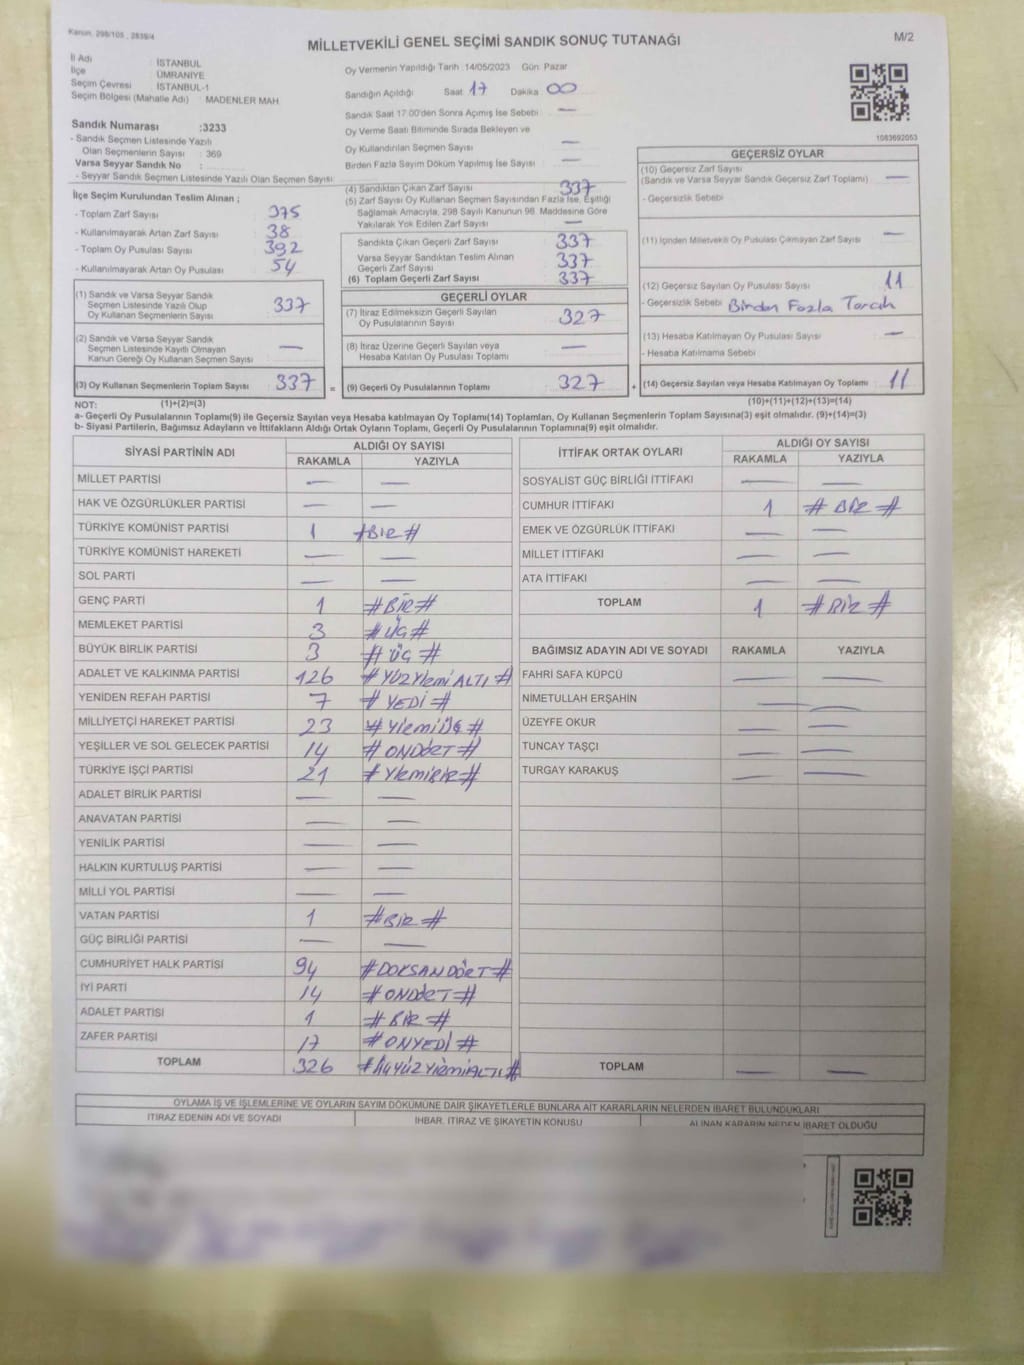 Kanun, 298/105, 2839/4
MİLLETVEKİLİ GENEL SEÇİMİ SANDIK SONUÇ TUTANAĞI
M/2
İl Adı : İSTANBUL
İlçe : ÜMRANİYE
Seçim Çevresi : İSTANBUL-1
Seçim Bölgesi (Mahalle Adı) : MADENLER MAH.
Sandık Numarası :3233
- Sandık Seçmen Listesinde Yazılı
Olan Seçmenlerin Sayısı : 369
Varsa Seyyar Sandık No :
- Seyyar Sandık Seçmen Listesinde Yazılı Olan Seçmen Sayısı :
Oy Vermenin Yapıldığı Tarih :14/05/2023 Gün: Pazar
Sandığın Açıldığı Saat 17 Dakika 00
Sandık Saat 17.00'den Sonra Açmış İse Sebebi : —
Oy Verme Saati Bitiminde Sırada Bekleyen ve
Oy Kullandırılan Seçmen Sayısı : —
Birden Fazla Sayım Döküm Yapılmış İse Sayısı : —
1083692053
İlçe Seçim Kurulundan Teslim Alınan ;
- Toplam Zarf Sayısı : 375
- Kullanılmayarak Artan Zarf Sayısı : 38
- Toplam Oy Pusulası Sayısı : 392
- Kullanılmayarak Artan Oy Pusulası : 54
(1) Sandık ve Varsa Seyyar Sandık
Seçmen Listesinde Yazılı Olup
Oy Kullanan Seçmenlerin Sayısı : 337
(2) Sandık ve Varsa Seyyar Sandık
Seçmen Listesinde Kayıtlı Olmayan
Kanun Gereği Oy Kullanan Seçmen Sayısı : —
(3) Oy Kullanan Seçmenlerin Toplam Sayısı : 337 =
(1)+(2)=(3)
(4) Sandıktan Çıkan Zarf Sayısı : 337
(5) Zarf Sayısı Oy Kullanan Seçmen Sayısından Fazla İse, Eşitliği
Sağlamak Amacıyla, 298 Sayılı Kanunun 98. Maddesine Göre
Yakılarak Yok Edilen Zarf Sayısı : —
Sandıkta Çıkan Geçerli Zarf Sayısı : 337
Varsa Seyyar Sandıktan Teslim Alınan
Geçerli Zarf Sayısı : 337
(6) Toplam Geçerli Zarf Sayısı : 337
GEÇERLİ OYLAR
(7) İtiraz Edilmeksizin Geçerli Sayılan
Oy Pusulalarının Sayısı : 327
(8) İtiraz Üzerine Geçerli Sayılan veya
Hesaba Katılan Oy Pusulası Toplamı : —
(9) Geçerli Oy Pusulalarının Toplamı : 327 +
GEÇERSİZ OYLAR
(10) Geçersiz Zarf Sayısı
(Sandık ve Varsa Seyyar Sandık Geçersiz Zarf Toplamı) : —
- Geçersizlik Sebebi :
(11) İçinden Milletvekili Oy Pusulası Çıkmayan Zarf Sayısı : —
(12) Geçersiz Sayılan Oy Pusulası Sayısı : 11
- Geçersizlik Sebebi : Birden Fazla Tercih
(13) Hesaba Katılmayan Oy Pusulası Sayısı : —
- Hesaba Katılmama Sebebi :
(14) Geçersiz Sayılan veya Hesaba Katılmayan Oy Toplamı : 11
(10)+(11)+(12)+(13)=(14)
NOT:
a- Geçerli Oy Pusulalarının Toplamı(9) ile Geçersiz Sayılan veya Hesaba katılmayan Oy Toplamı(14) Toplamları, Oy Kullanan Seçmenlerin Toplam Sayısına(3) eşit olmalıdır. (9)+(14)=(3)
b- Siyasi Partilerin, Bağımsız Adayların ve İttifakların Aldığı Ortak Oyların Toplamı, Geçerli Oy Pusulalarının Toplamına(9) eşit olmalıdır.
SİYASİ PARTİNİN ADI ALDIĞI OY SAYISI
RAKAMLA YAZIYLA
MİLLET PARTİSİ — —
HAK VE ÖZGÜRLÜKLER PARTİSİ — —
TÜRKİYE KOMÜNİST PARTİSİ 1 #BİR#
TÜRKİYE KOMÜNİST HAREKETİ — —
SOL PARTİ — —
GENÇ PARTİ 1 #BİR#
MEMLEKET PARTİSİ 3 #ÜÇ#
BÜYÜK BİRLİK PARTİSİ 3 #ÜÇ#
ADALET VE KALKINMA PARTİSİ 126 #YÜZYİRMİALTI#
YENİDEN REFAH PARTİSİ 7 #YEDİ#
MİLLİYETÇİ HAREKET PARTİSİ 23 #YİRMİÜÇ#
YEŞİLLER VE SOL GELECEK PARTİSİ 14 #ONDÖRT#
TÜRKİYE İŞÇİ PARTİSİ 21 #YİRMİBİR#
ADALET BİRLİK PARTİSİ — —
ANAVATAN PARTİSİ — —
YENİLİK PARTİSİ — —
HALKIN KURTULUŞ PARTİSİ — —
MİLLİ YOL PARTİSİ — —
VATAN PARTİSİ 1 #BİR#
GÜÇ BİRLİĞİ PARTİSİ — —
CUMHURİYET HALK PARTİSİ 94 #DOKSANDÖRT#
İYİ PARTİ 14 #ONDÖRT#
ADALET PARTİSİ 1 #BİR#
ZAFER PARTİSİ 17 #ONYEDİ#
TOPLAM 326 #ÜÇYÜZYİRMİALTI#
İTTİFAK ORTAK OYLARI ALDIĞI OY SAYISI
RAKAMLA YAZIYLA
SOSYALİST GÜÇ BİRLİĞİ İTTİFAKI — —
CUMHUR İTTİFAKI 1 #BİR#
EMEK VE ÖZGÜRLÜK İTTİFAKI — —
MİLLET İTTİFAKI — —
ATA İTTİFAKI — —
TOPLAM 1 #BİR#
BAĞIMSIZ ADAYIN ADI VE SOYADI RAKAMLA YAZIYLA
FAHRİ SAFA KÜPCÜ — —
NİMETULLAH ERŞAHİN — —
ÜZEYFE OKUR — —
TUNCAY TAŞÇI — —
TURGAY KARAKUŞ — —
TOPLAM — —
OYLAMA İŞ VE İŞLEMLERİNE VE OYLARIN SAYIM DÖKÜMÜNE DAİR ŞİKAYETLERLE BUNLARA AİT KARARLARIN NELERDEN İBARET BULUNDUKLARI
İTİRAZ EDENİN ADI VE SOYADI İHBAR, İTİRAZ VE ŞİKAYETİN KONUSU ALINAN KARARIN NEDEN İBARET OLDUĞU